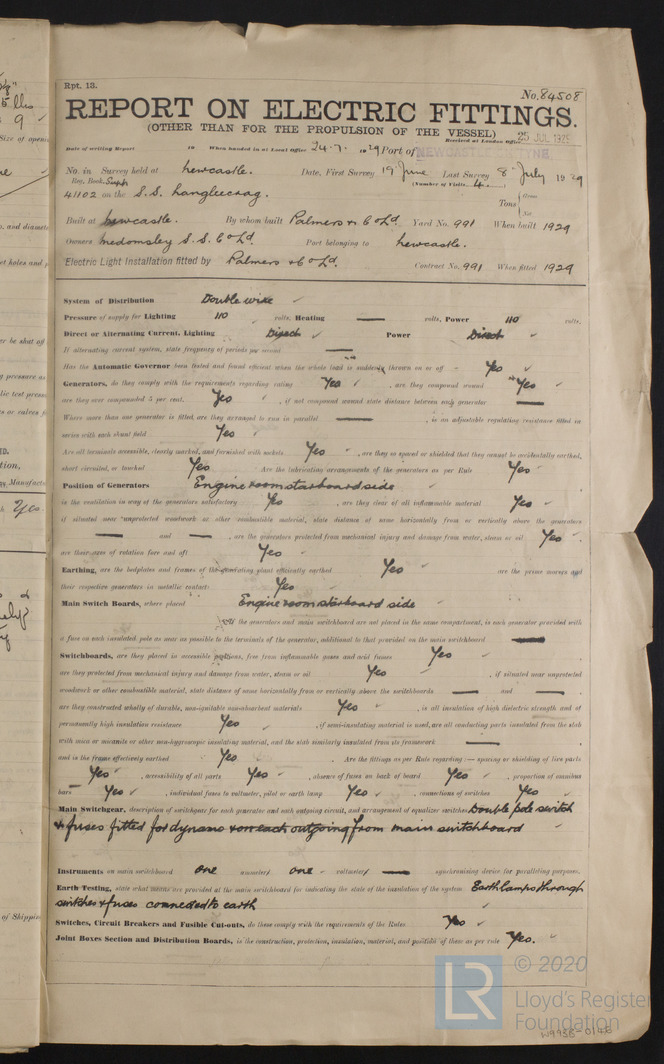 Rpt. 13.
No. 84508
REPORT ON ELECTRIC FITTINGS.
(OTHER THAN FOR THE PROPULSION OF THE VESSEL)
Received at London Office 25 JUL 1929
Date of writing Report 19 When handed in at Local Office 24.7. 1929 Port of NEWCASTLE-ON-TYNE
No. in Survey held at Newcastle. Date, First Survey 19 June Last Survey 8 July 1929
Reg. Book. Supp (Number of Visits 4.)
41102 on the S.S. Langleecrag. Tons { Gross
Net
Built at Newcastle. By whom built Palmers & Co Ld. Yard No. 991 When built 1929
Owners Medomsley S.S. Co Ld. Port belonging to Newcastle.
Electric Light Installation fitted by Palmers & Co Ld. Contract No. 991 When fitted 1929
System of Distribution Double wire ✓
Pressure of supply for Lighting 110 volts, Heating — volts, Power 110 volts.
Direct or Alternating Current, Lighting Direct ✓ Power Direct ✓
If alternating current system, state frequency of periods per second —
Has the Automatic Governor been tested and found efficient when the whole load is suddenly thrown on or off Yes ✓
Generators, do they comply with the requirements regarding rating Yes ✓, are they compound wound Yes ✓
are they over compounded 5 per cent. Yes ✓, if not compound wound state distance between each generator —
Where more than one generator is fitted, are they arranged to run in parallel —, is an adjustable regulating resistance fitted in
series with each shunt field Yes ✓
Are all terminals accessible, clearly marked, and furnished with sockets Yes ✓, are they so spaced or shielded that they cannot be accidentally earthed,
short circuited, or touched Yes Are the lubricating arrangements of the generators as per Rule Yes ✓
Position of Generators Engine room starboard side ✓
is the ventilation in way of the generators satisfactory Yes ✓, are they clear of all inflammable material Yes ✓
if situated near unprotected woodwork or other combustible material, state distance of same horizontally from or vertically above the generators
— and —, are the generators protected from mechanical injury and damage from water, steam or oil Yes ✓
are their axes of rotation fore and aft Yes ✓
Earthing, are the bedplates and frames of the generating plant efficiently earthed Yes ✓ are the prime movers and
their respective generators in metallic contact Yes ✓
Main Switch Boards, where placed Engine room starboard side ✓
If the generators and main switchboard are not placed in the same compartment, is each generator provided with
a fuse on each insulated pole as near as possible to the terminals of the generator, additional to that provided on the main switchboard —
Switchboards, are they placed in accessible positions, free from inflammable gases and acid fumes Yes ✓
are they protected from mechanical injury and damage from water, steam or oil Yes ✓, if situated near unprotected
woodwork or other combustible material, state distance of same horizontally from or vertically above the switchboards — and —
are they constructed wholly of durable, non-ignitable non-absorbent materials Yes ✓, is all insulation of high dielectric strength and of
permanently high insulation resistance Yes ✓, if semi-insulating material is used, are all conducting parts insulated from the slab
with mica or micanite or other non-hygroscopic insulating material, and the slab similarly insulated from its framework —
and is the frame effectively earthed Yes. Are the fittings as per Rule regarding:— spacing or shielding of live parts
Yes ✓, accessibility of all parts Yes ✓, absence of fuses on back of board Yes ✓, proportion of omnibus
bars Yes ✓, individual fuses to voltmeter, pilot or earth lamp Yes ✓, connections of switches Yes ✓
Main Switchgear, description of switchgear for each generator and each outgoing circuit, and arrangement of equalizer switches Double pole switch
& fuses fitted for dynamo & on each outgoing from main switchboard ✓
Instruments on main switchboard one ammeter one ✓ voltmeter — synchronizing device for paralleling purposes.
Earth Testing, state what means are provided at the main switchboard for indicating the state of the insulation of the system Earth lamps through
switches & fuses connected to earth ✓
Switches, Circuit Breakers and Fusible Cut-outs, do these comply with the requirements of the Rules Yes ✓
Joint Boxes Section and Distribution Boards, is the construction, protection, insulation, material, and position of these as per rule Yes. ✓
LR © 2020
Lloyd's Register
Foundation
W995B-0146